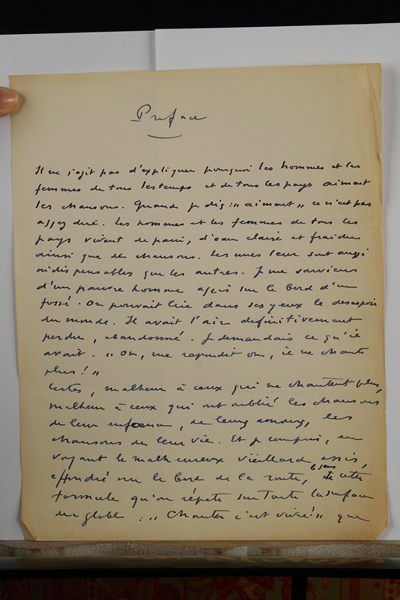 Préface
Il ne s'agit pas d'expliquer pourquoi les hommes et les
femmes de tous les temps et de tous les pays aiment
les chansons. Quand je dis : "aiment" ce n'est pas
assez dire. Les hommes et les femmes de tous les
pays vivent de pain, d'eau claire et fraîche
ainsi que de chansons. Les unes leur sont aussi
indispensables que les autres. Je me souviens
d'un pauvre homme assis sur le bord d'un
fossé. On pouvait lire dans ses yeux le désespoir
du monde. Il avait l'air définitivement
perdu, abandonné. Je demandais ce qu'il
avait. "Oh, me répondit on, il ne chante
plus !"
Certes, malheur à ceux qui ne chantent plus,
malheur à ceux qui ont oublié les chansons
de leur enfance, de leurs amours, les
chansons de leur vie. Et je compris, en
voyant le malheureux vieillard assis
effondré sur le bord de la route, le sens de cette
formule qu'on répète sur toute la surface
du globe : "Chanter c'est vivre !" que